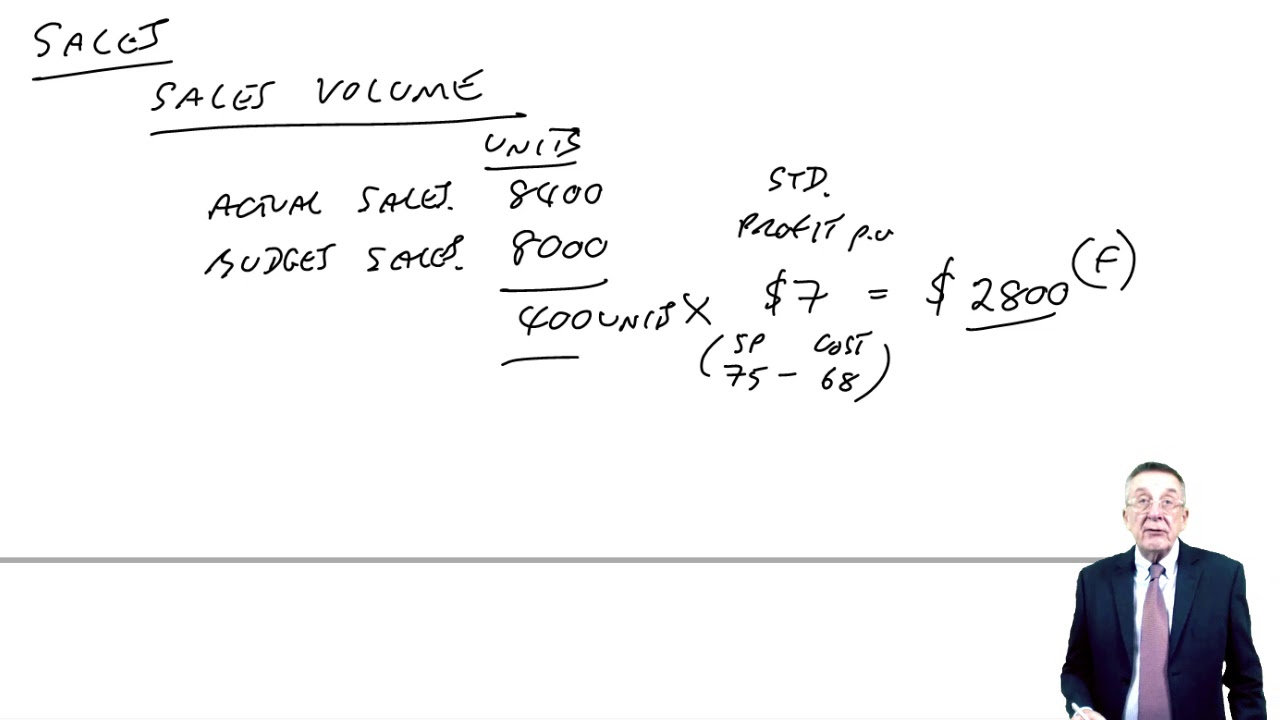 SALES
SALES VOLUME
UNITS
ACTUAL SALES. 8400
BUDGET SALES. 8000
400 UNITS X
STD.
PROFIT p.u
$7 = $ 2800 (F)
(SP COST
75 - 68)